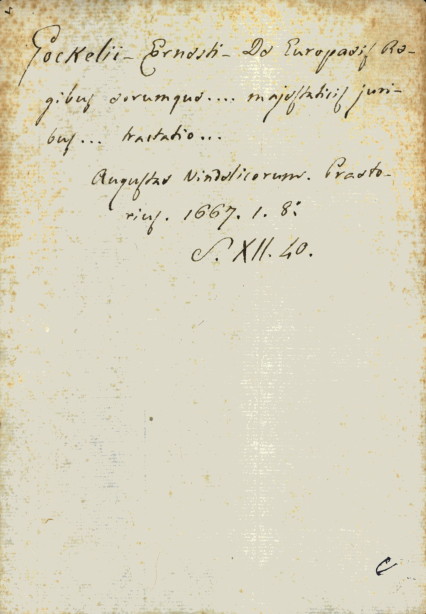 Gockelii – Ernesti – De Europaeis Re-
gibus eorumque .... majestaticis juri-
bus ... tractatio ...
Augustae Vindelicorum. Praeto-
rius. 1667. 1. 8:
S. XII. 40.